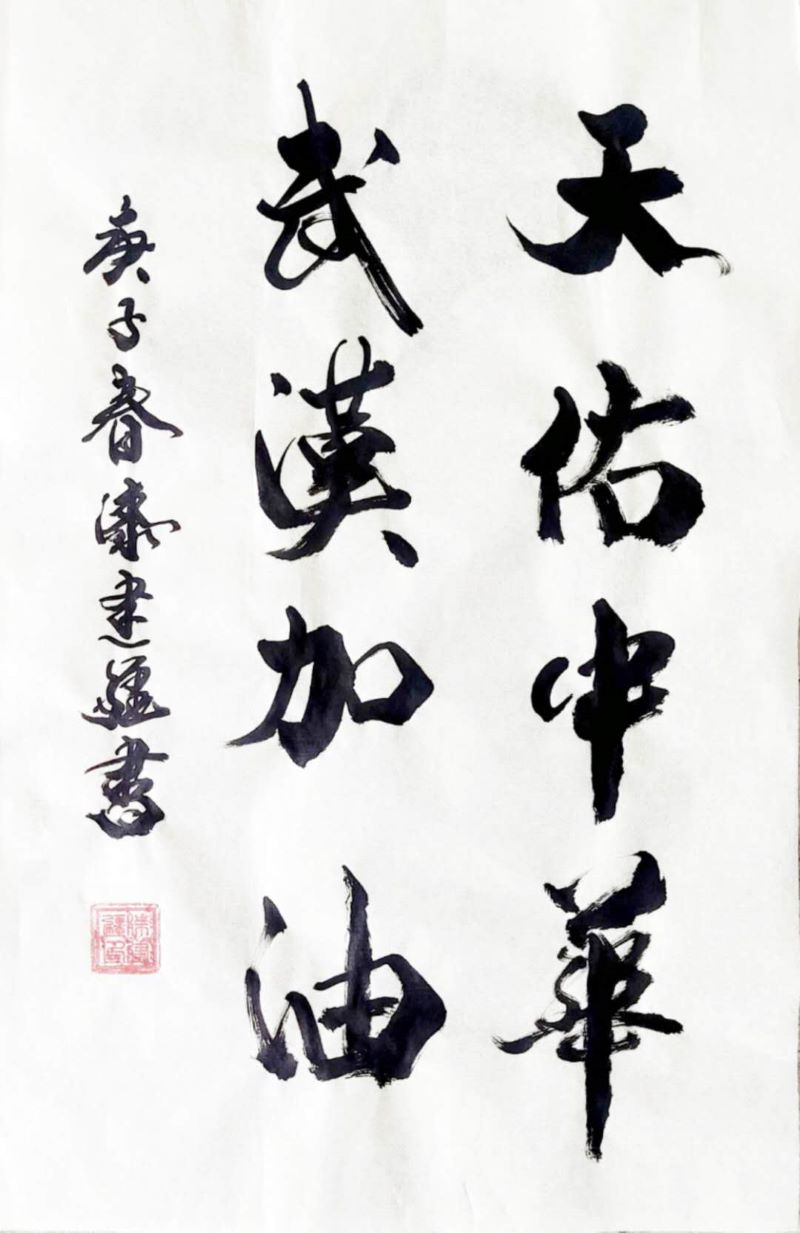 天佑中華
武漢加油
庚子春 建 書